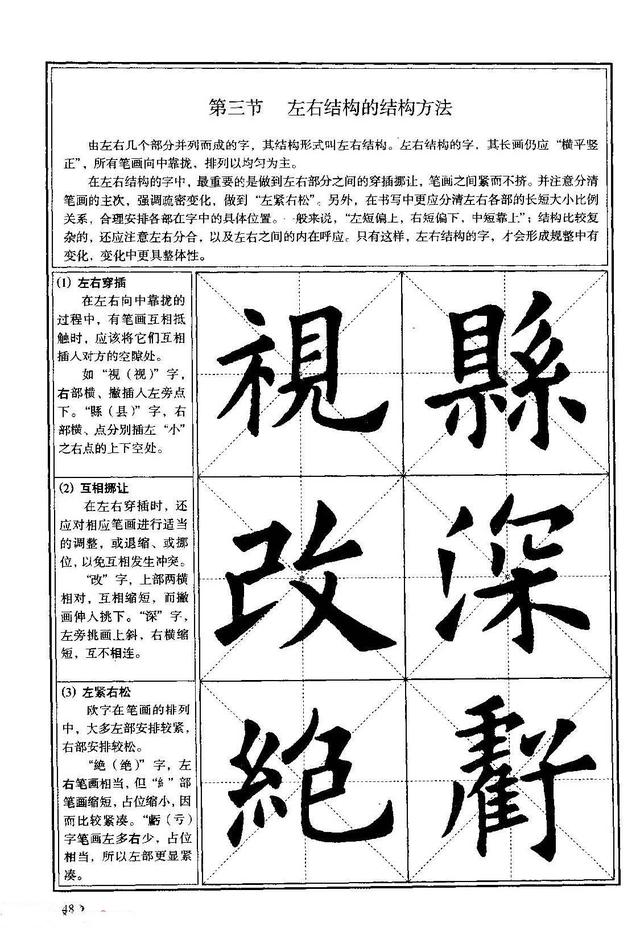 第三节 左右结构的结构方法
由左右几个部分并列而成的字，其结构形式叫左右结构。左右结构的字，其长画仍应“横平竖
正”，所有笔画向中靠拢，排列以均匀为主。
在左右结构的字中，最重要的是做到左右部分之间的穿插挪让，笔画之间紧而不挤。并注意分清
笔画的主次，强调疏密变化，做到“左紧右松”。另外，在书写中更应分清左右各部的长短大小比例
关系，合理安排各部在字中的具体位置。一般来说，“左短偏上，右短偏下，中短靠上”；结构比较复
杂的，还应注意左右分合，以及左右之间的内在呼应。只有这样，左右结构的字，才会形成规整中有
变化，变化中更具整体性。
(1) 左右穿插
在左右向中靠拢的
过程中，有笔画互相抵
触时，应该将它们互相
插入对方的空隙处。
如“視（视）”字，
右部横、撇插入左旁点
下。“縣（县）”字，右
部横、点分别插左“小”
之右点的上下空处。
視 縣
(2) 互相挪让
在左右穿插时，还
应对相应笔画进行适当
的调整，或退缩、或挪
位，以免互相发生冲突。
“改”字，上部两横
相对，互相缩短，而撇
画伸入挑下。“深”字，
左旁挑画上斜，右横缩
短，互不相连。
改 深
(3) 左紧右松
欧字在笔画的排列
中，大多左部安排较紧，
右部安排较松。
“絶（绝）”字，左
右笔画相当，但“纟”部
笔画缩短，占位缩小，因
而比较紧凑。“虧（亏）
字笔画左多右少，占位
相当，所以左部更显紧
凑。
絶 虧
48